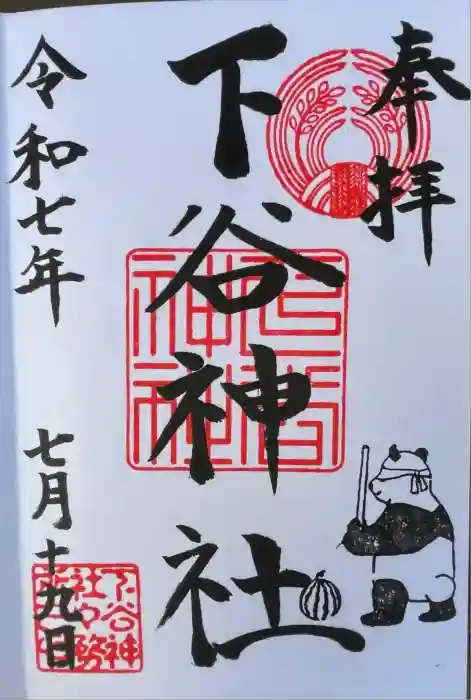 奉拝
下谷神社
令和七年
七月十九日
下谷神
社々務
所印